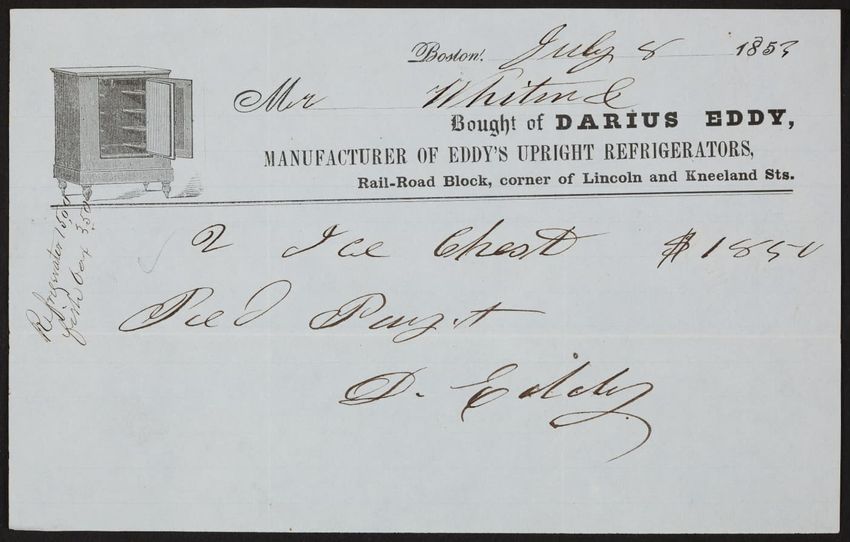 Boston, July 8 1853
Mr Whitm
Bought of DARIUS EDDY,
MANUFACTURER OF EDDY'S UPRIGHT REFRIGERATORS,
Rail-Road Block, corner of Lincoln and Kneeland Sts.
2 Ice Chest $1850
Recd Paymt
D. Eddy
Refrigerator 15.00
fish box 3.50